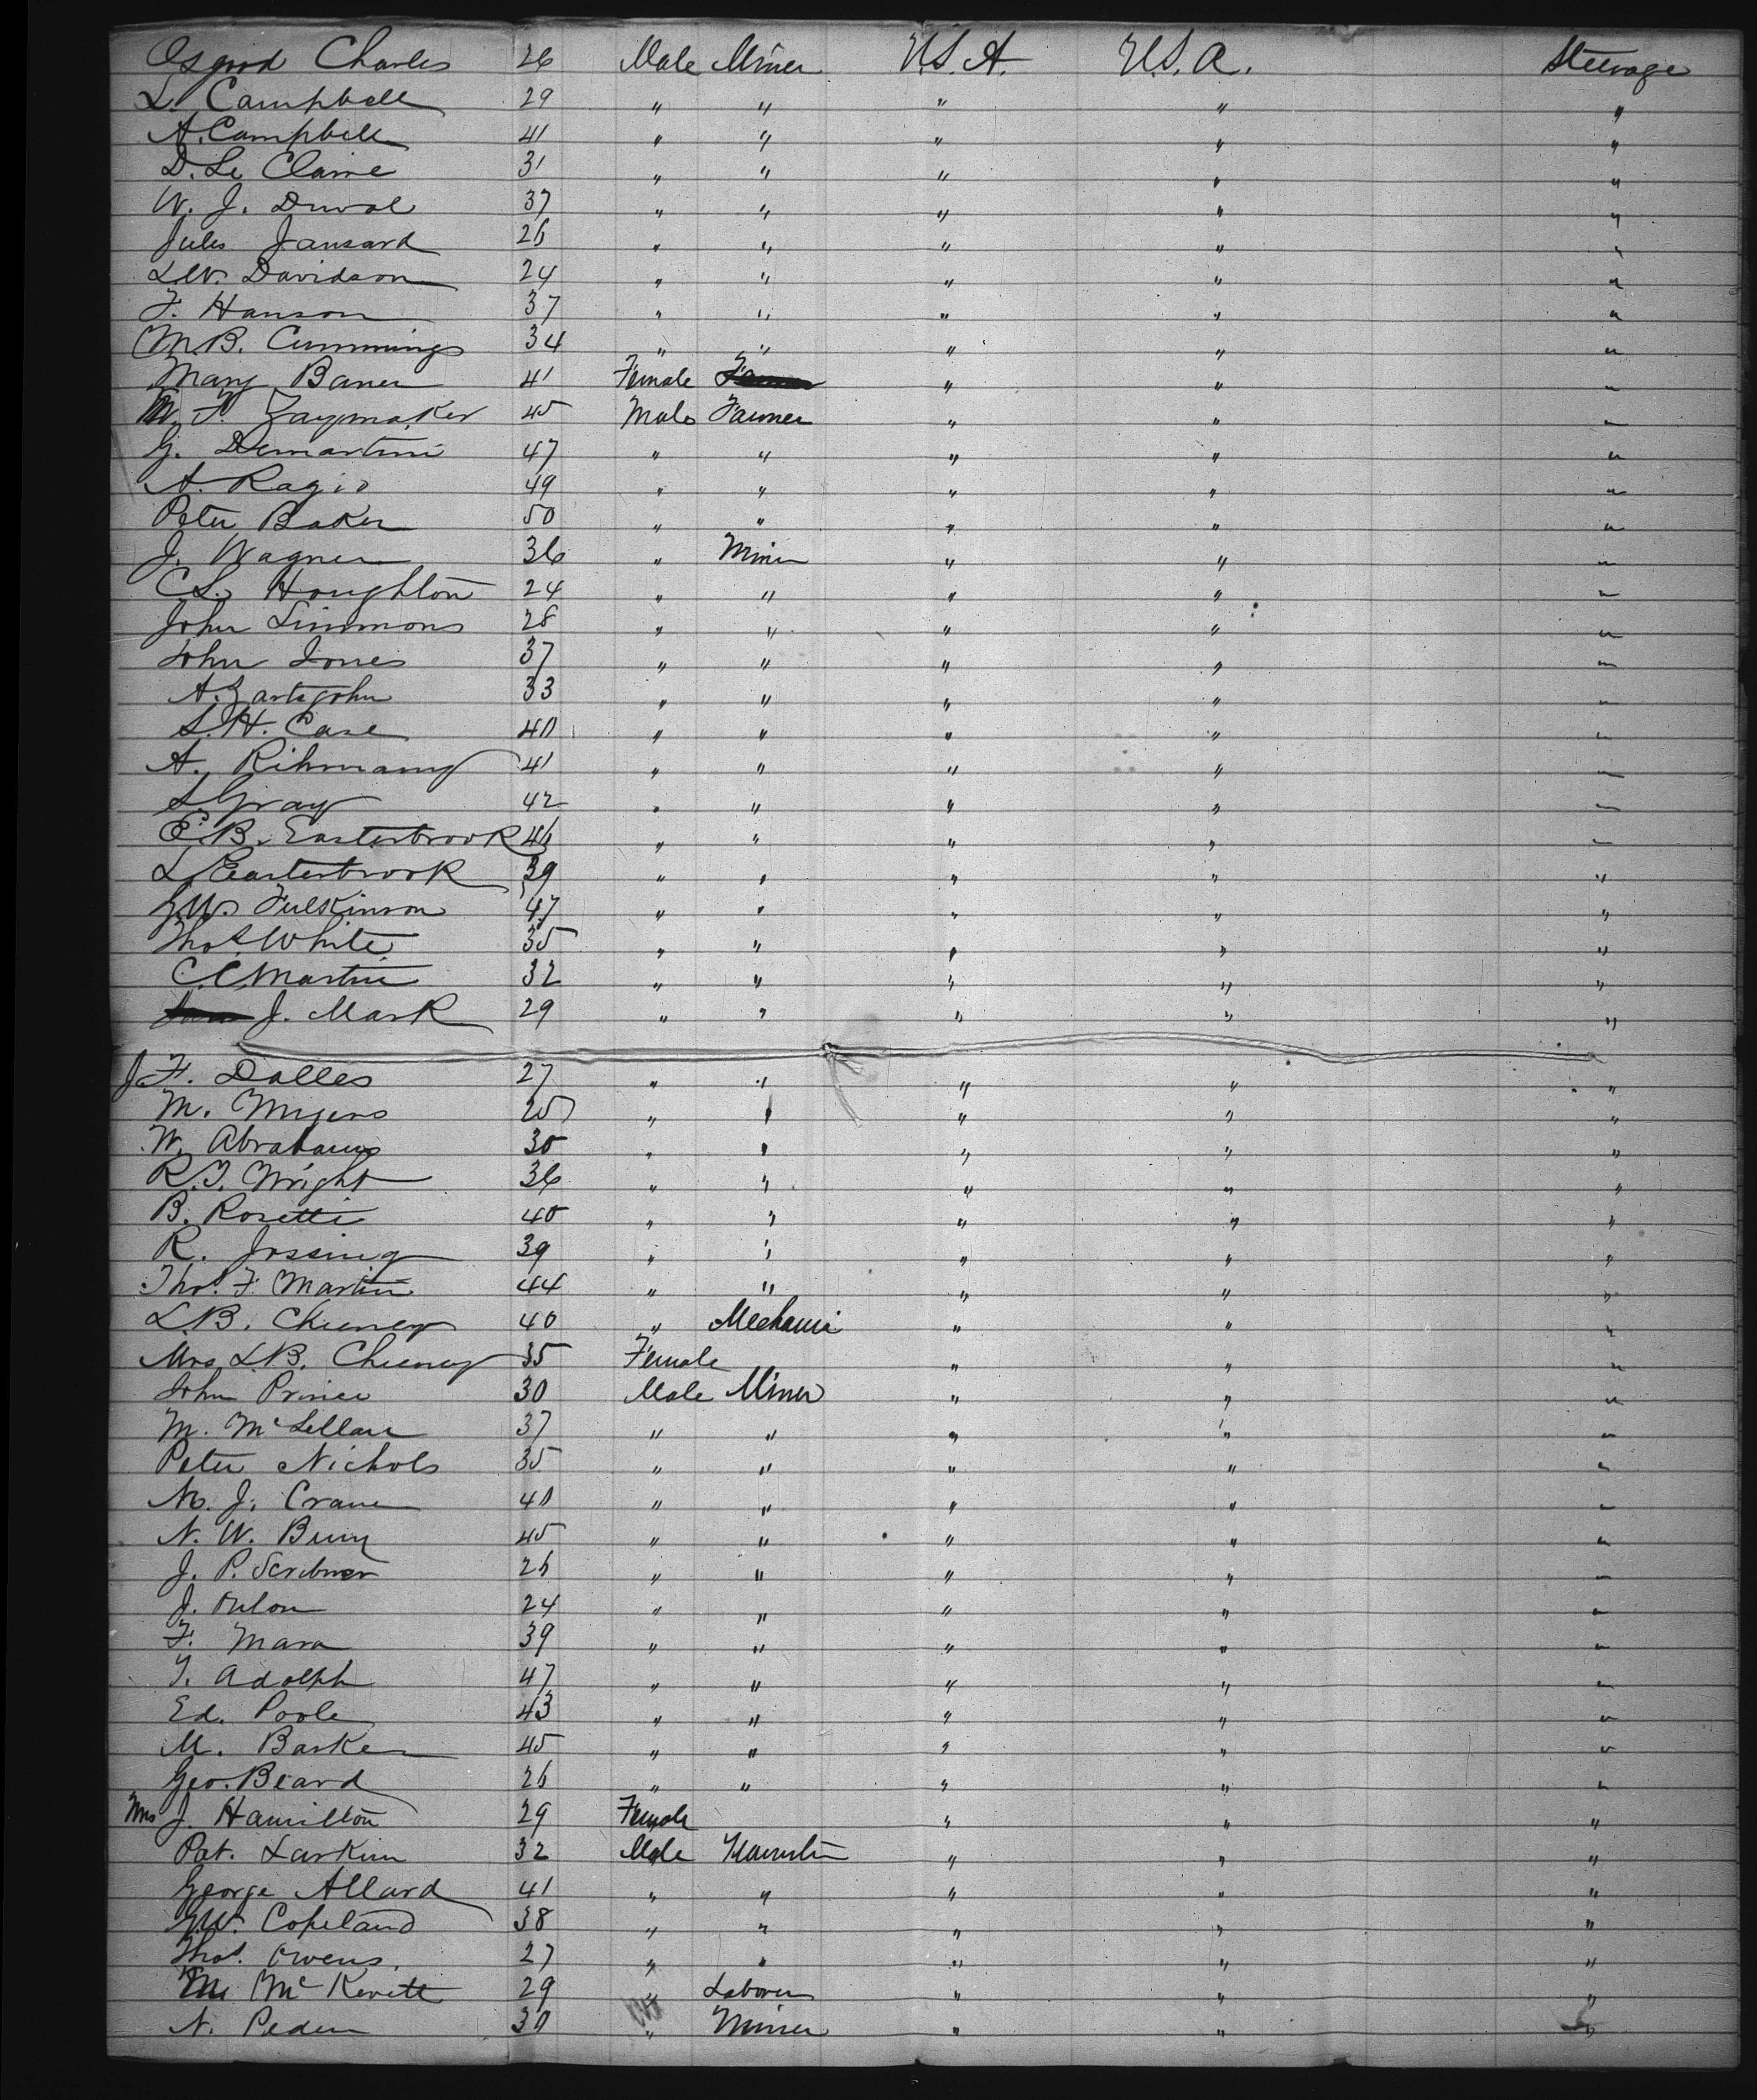 Osgood Charles 26 Male Miner U.S.A. U.S.A. Steerage
L. Campbell 29 " " " " "
A. Campbell 41 " " " " "
D. Le Claire 31 " " " " "
W. J. Duval 37 " " " " "
Jules Jansard 26 " " " " "
L.W. Davidson 24 " " " " "
F. Hanson 37 " " " " "
M.B. Cummings 34 " " " " "
Mary Baner 41 Female " " "
M. F. Zaymaker 45 Male Farmer " " "
G. Demartini 47 " " " " "
A. Ragio 49 " " " " "
Peter Baker 50 " " " " "
J. Wagner 36 " Miner " " "
C.L. Houghton 24 " " " " "
John Simmons 28 " " " " "
John Jones 37 " " " " "
A. 33 " " " " "
S.H. Case 40 " " " " "
A. 41 " " " " "
S. Gray 42 " " " " "
E.B. Easterbrook 46 " " " " "
L. Easterbrook 39 " " " " "
G.W. Fulkinson 47 " " " " "
Thos. White 35 " " " " "
C.C. Martin 32 " " " " "
J. Mark 29 " " " " "
J.F. Dalles 27 " " " " "
M. Myers 25 " " " " "
W. Abrahams 30 " " " " "
R.T. Wright 36 " " " " "
B. Rosetti 40 " " " " "
R. Jossing 39 " " " " "
Thos. F. Martin 44 " " " " "
L.B. Cheeney 40 " Mechanic " " "
Mrs L.B. Cheeney 35 Female " " "
John Prince 30 Male Miner " " "
M. McLellan 37 " " " " "
Peter Nichols 35 " " " " "
M. J. Crane 40 " " " " "
N. W. 45 " " " " "
J. P. Scribner 26 " " " " "
J. 24 " " " " "
F. Mara 39 " " " " "
T. Adolph 47 " " " " "
Ed. Poole 43 " " " " "
M. Barker 45 " " " " "
Geo. Beard 26 " " " " "
Mrs J. Hamilton 29 Female " " "
Pat. Larkin 32 Male " " "
George Allard 41 " " " " "
G.W. Copeland 38 " " " " "
Thos. Owens. 27 " " " " "
M McKevitt 29 " Laborer " " "
N. Peden 30 " Miner " " "